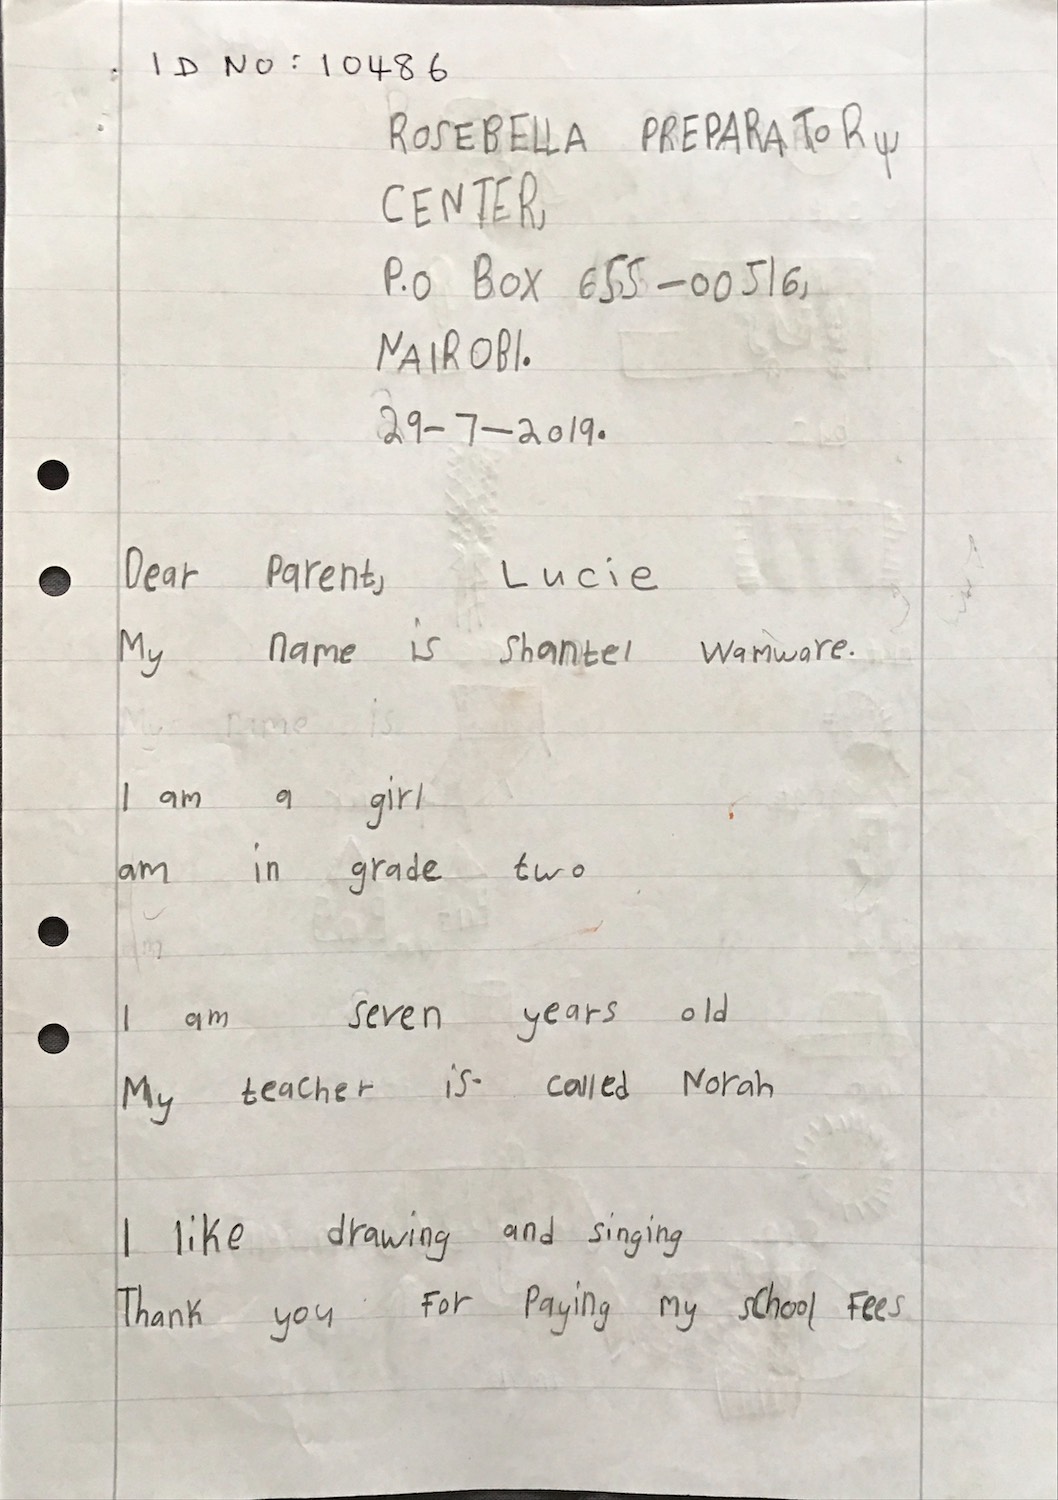 ID NO: 10486
ROSEBELLA PREPARATORY
CENTER,
P.O BOX 655-00516,
NAIROBI.
29-7-2019.
Dear Parent, Lucie
My name is Shantel Wamware.
My name is
I am a girl
am in grade two
I am seven years old
My teacher is called Norah
I like drawing and singing
Thank you For Paying my school Fees